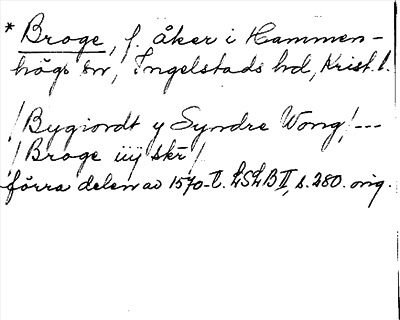 * Broge, f. åker i Hammen-
högs sn, Ingelstads hd, Krist. l.
/Bygiordt y Syndre Wong/ ---
/Broge iiij skr/
förra delen av 1570-t. LSLB II, s. 280. orig.